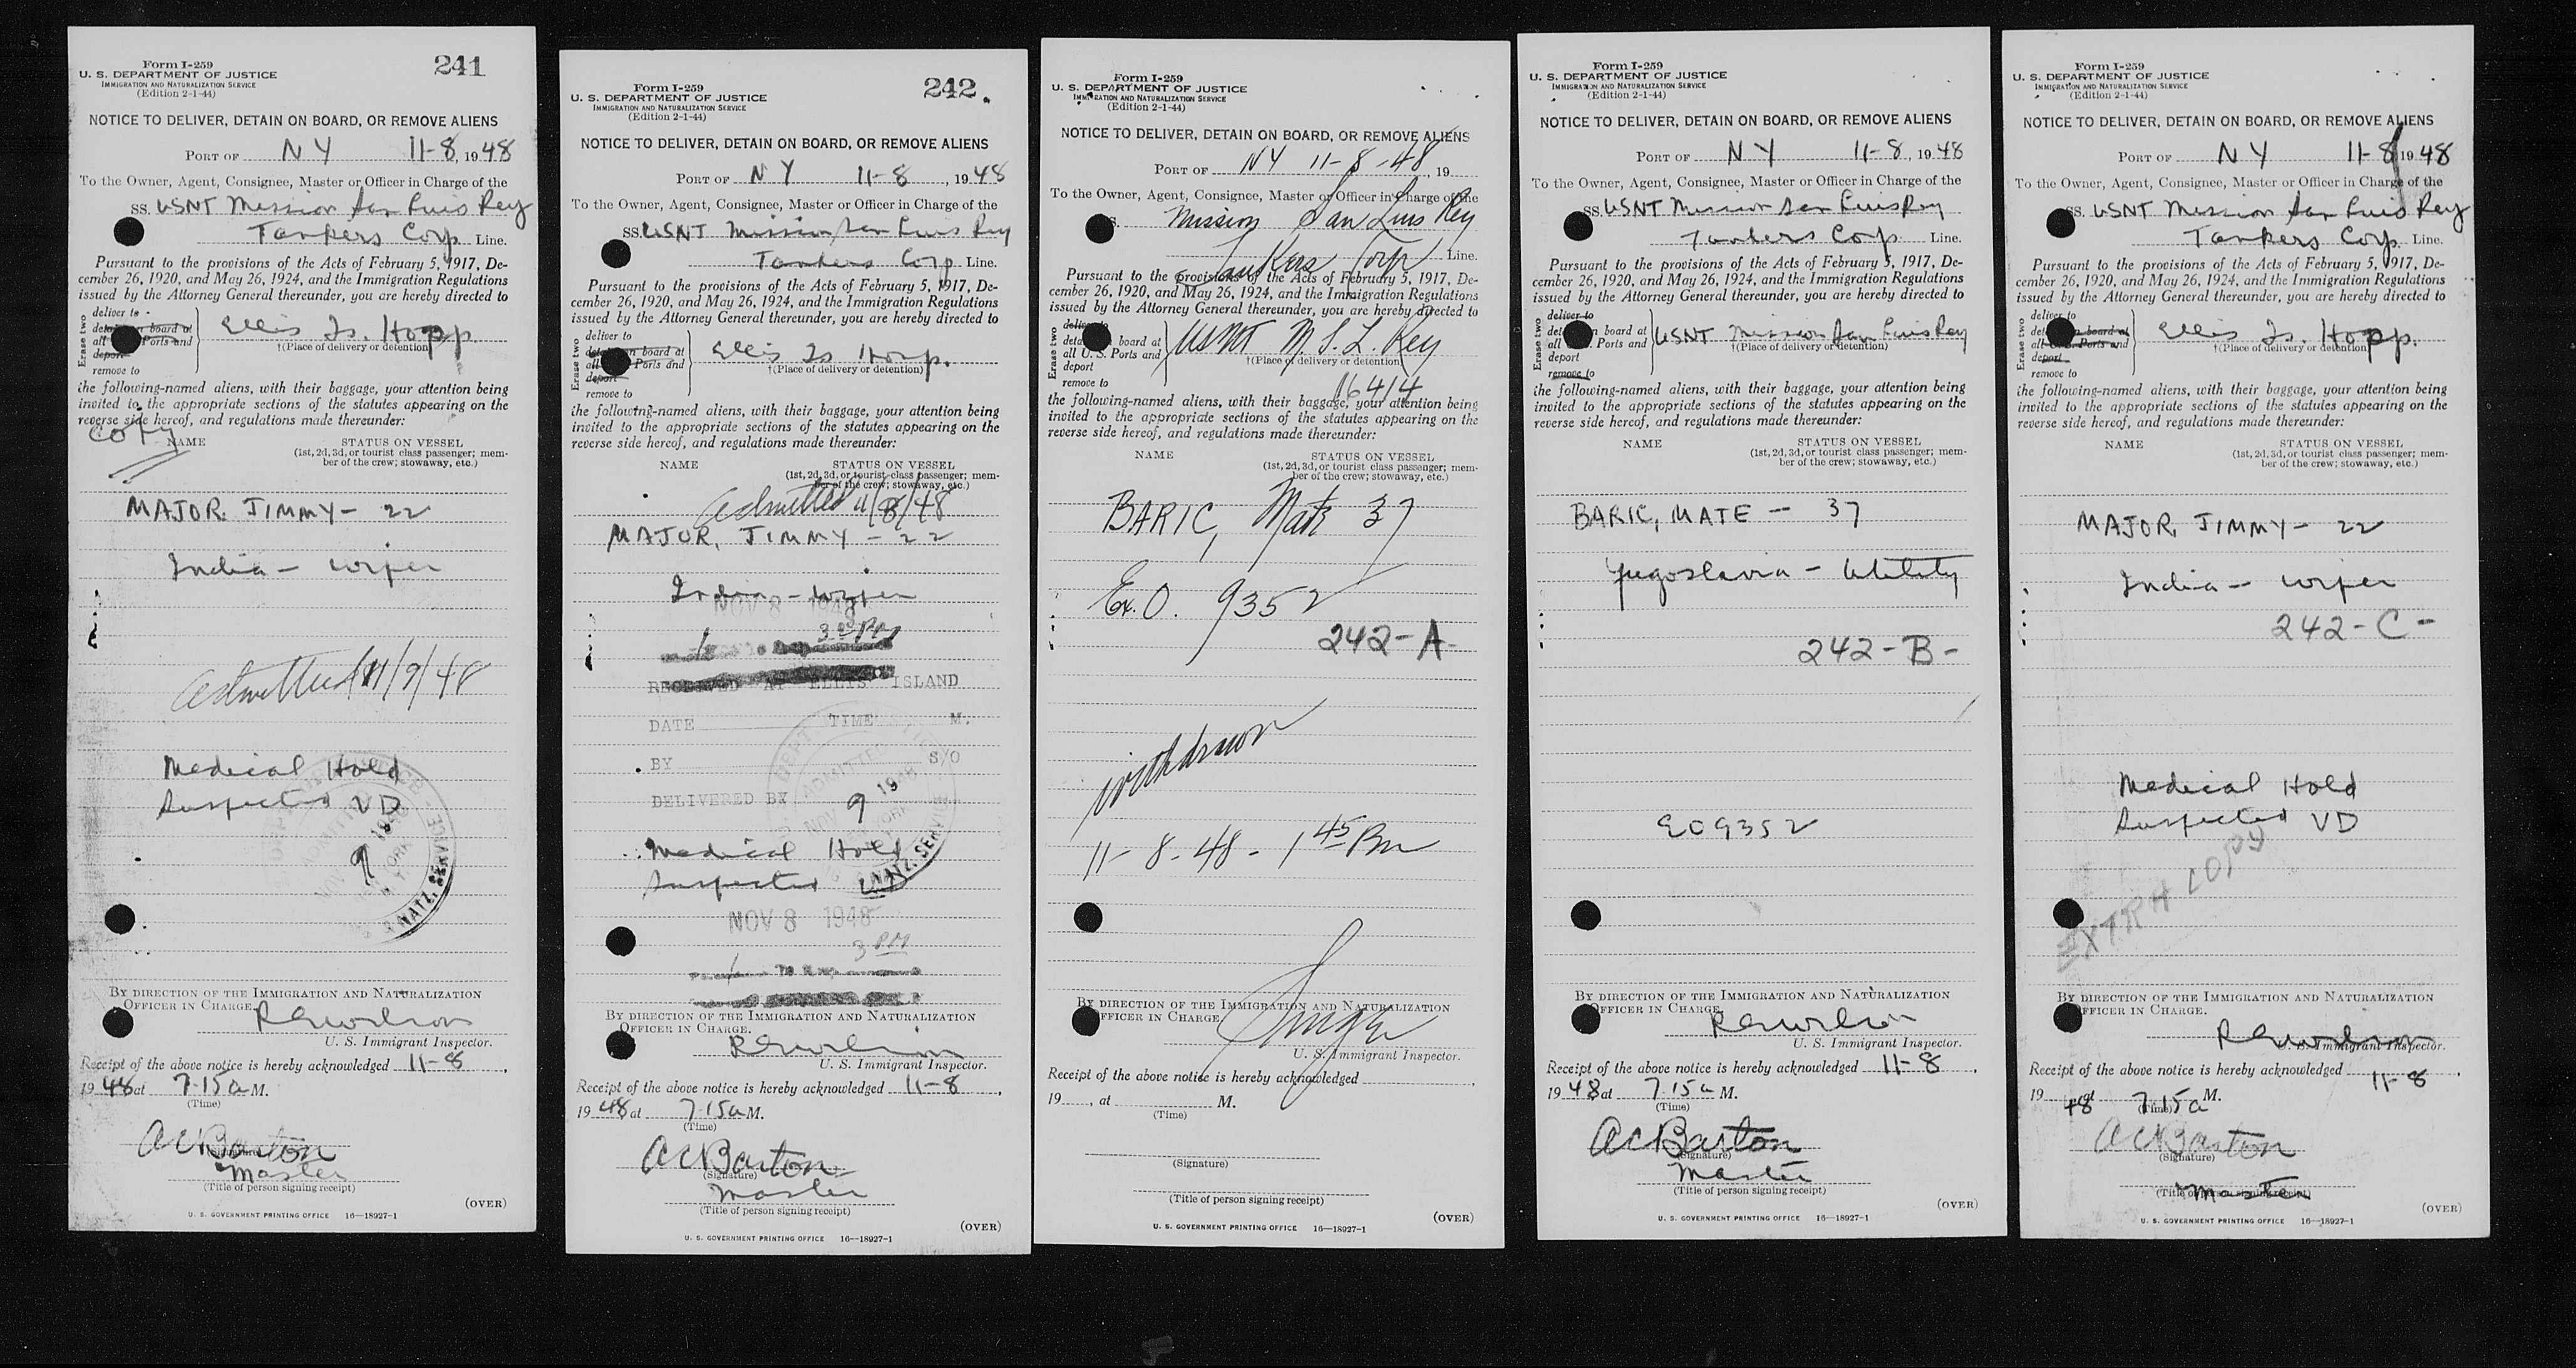 241
Form I-259
U. S. DEPARTMENT OF JUSTICE
IMMIGRATION AND NATURALIZATION SERVICE
(Edition 2-1-44)
NOTICE TO DELIVER, DETAIN ON BOARD, OR REMOVE ALIENS
PORT OF NY 11-8, 1948
To the Owner, Agent, Consignee, Master or Officer in Charge of the
SS. USNT Mission San Luis Rey
Tankers Corp Line.
Pursuant to the provisions of the Acts of February 5, 1917, De-
cember 26, 1920, and May 26, 1924, and the Immigration Regulations
issued by the Attorney General thereunder, you are hereby directed to
Erase two
deliver to
detain on board at
all Ports and
deport
remove to
Ellis Is. Hopp
†(Place of delivery or detention)
the following-named aliens, with their baggage, your attention being
invited to the appropriate sections of the statutes appearing on the
reverse side hereof, and regulations made thereunder:
Copy
NAME STATUS ON VESSEL
(1st, 2d, 3d, or tourist class passenger; mem-
ber of the crew; stowaway, etc.)
MAJOR. JIMMY - 22
India - wiper
Admitted 11/9/48
Medical Hold
Suspected VD
9
NATZ. SERVICE
BY DIRECTION OF THE IMMIGRATION AND NATURALIZATION
OFFICER IN CHARGE.
RGWilson
U. S. Immigrant Inspector.
Receipt of the above notice is hereby acknowledged 11-8,
1948 at 7 15 a M.
(Time)
AC Barton
(Signature)
Master
(Title of person signing receipt)
(OVER)
U. S. GOVERNMENT PRINTING OFFICE 16—18927-1
242.
Form I-259
U. S. DEPARTMENT OF JUSTICE
IMMIGRATION AND NATURALIZATION SERVICE
(Edition 2-1-44)
NOTICE TO DELIVER, DETAIN ON BOARD, OR REMOVE ALIENS
PORT OF NY 11-8, 1948
To the Owner, Agent, Consignee, Master or Officer in Charge of the
SS. USNT Mission San Luis Rey
Tankers Corp Line.
Pursuant to the provisions of the Acts of February 5, 1917, De-
cember 26, 1920, and May 26, 1924, and the Immigration Regulations
issued by the Attorney General thereunder, you are hereby directed to
Erase two
deliver to
detain on board at
all Ports and
deport
remove to
Ellis Is Hopp.
†(Place of delivery or detention)
the following-named aliens, with their baggage, your attention being
invited to the appropriate sections of the statutes appearing on the
reverse side hereof, and regulations made thereunder:
NAME STATUS ON VESSEL
(1st, 2d, 3d, or tourist class passenger; mem-
ber of the crew; stowaway, etc.)
Admitted 11/8/48
MAJOR, JIMMY - 22
India - wiper
NOV 8 1948
3 PM
RECEIVED AT ELLIS ISLAND
DATE TIME M.
BY S/O
DELIVERED BY
ADMITTED
NOV 9 1948
NATZ. SERVICE
Medical Hold
Suspected VD
NOV 8 1948
3 PM
BY DIRECTION OF THE IMMIGRATION AND NATURALIZATION
OFFICER IN CHARGE.
RGWilson
U. S. Immigrant Inspector.
Receipt of the above notice is hereby acknowledged 11-8,
1948 at 7 15 a M.
(Time)
AC Barton
(Signature)
Master
(Title of person signing receipt)
(OVER)
U. S. GOVERNMENT PRINTING OFFICE 16—18927-1
Form I-259
U. S. DEPARTMENT OF JUSTICE
IMMIGRATION AND NATURALIZATION SERVICE
(Edition 2-1-44)
NOTICE TO DELIVER, DETAIN ON BOARD, OR REMOVE ALIENS
PORT OF NY 11-8-48, 19
To the Owner, Agent, Consignee, Master or Officer in Charge of the
Mission San Luis Rey
Tankers Corp Line.
Pursuant to the provisions of the Acts of February 5, 1917, De-
cember 26, 1920, and May 26, 1924, and the Immigration Regulations
issued by the Attorney General thereunder, you are hereby directed to
Erase two
deliver to
detain on board at
all U. S. Ports and
deport
remove to
USNT M S. L. Rey
†(Place of delivery or detention)
16414
the following-named aliens, with their baggage, your attention being
invited to the appropriate sections of the statutes appearing on the
reverse side hereof, and regulations made thereunder:
NAME STATUS ON VESSEL
(1st, 2d, 3d, or tourist class passenger; mem-
ber of the crew; stowaway, etc.)
BARIC, Mate 37
Ex. O. 9352
242-A-
withdrawn
11-8-48 - 1 45 Pm
BY DIRECTION OF THE IMMIGRATION AND NATURALIZATION
OFFICER IN CHARGE.
U. S. Immigrant Inspector.
Receipt of the above notice is hereby acknowledged
19 , at M.
(Time)
(Signature)
(Title of person signing receipt)
(OVER)
U. S. GOVERNMENT PRINTING OFFICE 16—18927-1
Form I-259
U. S. DEPARTMENT OF JUSTICE
IMMIGRATION AND NATURALIZATION SERVICE
(Edition 2-1-44)
NOTICE TO DELIVER, DETAIN ON BOARD, OR REMOVE ALIENS
PORT OF NY 11-8, 1948
To the Owner, Agent, Consignee, Master or Officer in Charge of the
SS. USNT Mission San Luis Rey
Tankers Corp Line.
Pursuant to the provisions of the Acts of February 5, 1917, De-
cember 26, 1920, and May 26, 1924, and the Immigration Regulations
issued by the Attorney General thereunder, you are hereby directed to
Erase two
deliver to
detain on board at
all Ports and
deport
remove to
USNT Mission San Luis Rey
†(Place of delivery or detention)
the following-named aliens, with their baggage, your attention being
invited to the appropriate sections of the statutes appearing on the
reverse side hereof, and regulations made thereunder:
NAME STATUS ON VESSEL
(1st, 2d, 3d, or tourist class passenger; mem-
ber of the crew; stowaway, etc.)
BARIC, MATE - 37
Yugoslavia - Utility
242-B-
EO 9352
BY DIRECTION OF THE IMMIGRATION AND NATURALIZATION
OFFICER IN CHARGE.
RGWilson
U. S. Immigrant Inspector.
Receipt of the above notice is hereby acknowledged 11-8,
1948 at 7 15 a M.
(Time)
AC Barton
(Signature)
Master
(Title of person signing receipt)
(OVER)
U. S. GOVERNMENT PRINTING OFFICE 16—18927-1
Form I-259
U. S. DEPARTMENT OF JUSTICE
IMMIGRATION AND NATURALIZATION SERVICE
(Edition 2-1-44)
NOTICE TO DELIVER, DETAIN ON BOARD, OR REMOVE ALIENS
PORT OF NY 11-8 1948
To the Owner, Agent, Consignee, Master or Officer in Charge of the
SS. USNT Mission San Luis Rey
Tankers Corp. Line.
Pursuant to the provisions of the Acts of February 5, 1917, De-
cember 26, 1920, and May 26, 1924, and the Immigration Regulations
issued by the Attorney General thereunder, you are hereby directed to
Erase two
deliver to
detain on board at
all U. S. Ports and
deport
remove to
Ellis Is. Hopp.
†(Place of delivery or detention)
the following-named aliens, with their baggage, your attention being
invited to the appropriate sections of the statutes appearing on the
reverse side hereof, and regulations made thereunder:
NAME STATUS ON VESSEL
(1st, 2d, 3d, or tourist class passenger; mem-
ber of the crew; stowaway, etc.)
MAJOR, JIMMY - 22
India - wiper
242-C-
Medical Hold
Suspected VD
EXTRA COPY
BY DIRECTION OF THE IMMIGRATION AND NATURALIZATION
OFFICER IN CHARGE.
RGWilson
U. S. Immigrant Inspector.
Receipt of the above notice is hereby acknowledged 11-8,
1948 at 7 15 a M.
(Time)
AC Barton
(Signature)
Master
(Title of person signing receipt)
(OVER)
U. S. GOVERNMENT PRINTING OFFICE 16—18927-1